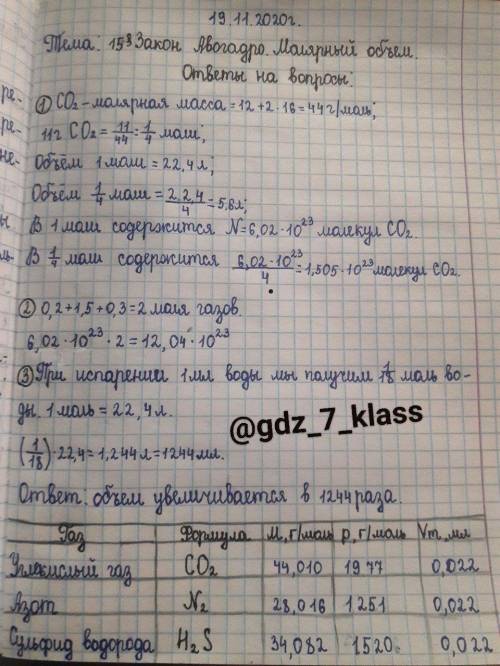 19.11.2020г.
Тема: 15§ Закон Авогадро. Молярный объем.
Ответы на вопросы:
① CO₂ - молярная масса = 12 + 2 · 16 = 44 г/моль;
11г CO₂ = 11/44 = 1/4 маш;
Объём 1 маш = 22,4 л;
Объём 1/4 маш = 2 2,4/4 = 5,6 л;
В 1 маш содержится N = 6,02 · 10²³ молекул CO₂.
В 1/4 маш содержится 6,02 · 10²³/4 = 1,505 · 10²³ молекул CO₂.
② 0,2 + 1,5 + 0,3 = 2 моля газов.
6,02 · 10²³ · 2 = 12,04 · 10²³
③ При испарении 1мл воды мы получим 1/18 моль во-
ды. 1 моль = 22,4 л.
@gdz_7_klass
(1/18) · 22,4 = 1,244 л = 1244 мл.
Ответ: объем увеличивается в 1244 раза.
Газ Формула М, г/моль р, г/моль Vm, мл
Углекислый газ CO₂ 44,010 1977 0,022
Азот N₂ 28,016 1251 0,022
Сульфид водорода H₂S 34,082 1520 0,022
ре-
ре-
не-